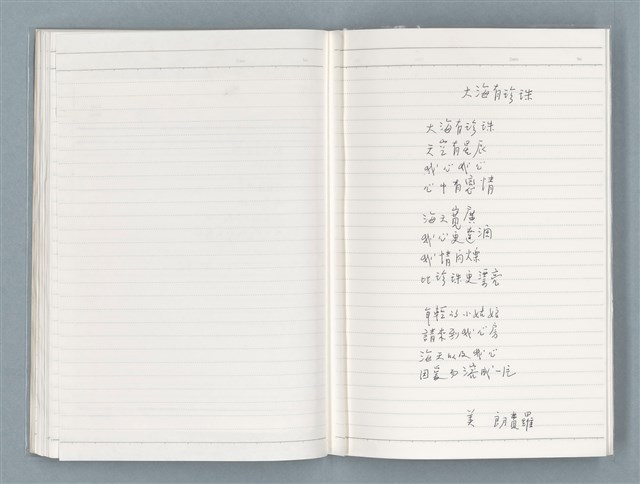 大海有珍珠
大海有珍珠
天空有星辰
我心我心
心中有戀情
海天寬廣
我心更遼濶
我情閃爍
比珍珠更漂亮
年輕的小姑娘
請來到我心房
海天以及我心
因愛而溶成一片
美 朗費羅